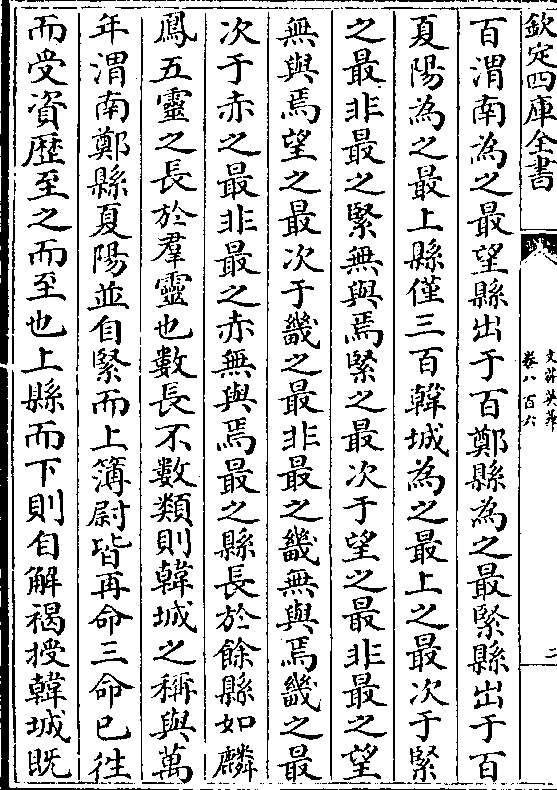 欽定四庫全書
文苑英華
卷八百六
二
百渭南為之最望縣出于百鄭縣為之最緊縣出于百
夏陽為之最上縣僅三百韓城為之最上之最次于緊
之最非最之緊無與焉緊之最次于望之最非最之望
無與焉望之最次于畿之最非最之畿無與焉畿之最
次于赤之最非最之赤無與焉最之縣長於餘縣如麟
鳳五靈之長於羣靈也數長不數類則韓城之稱與萬
年渭南鄭縣夏陽並自緊而上簿尉皆再命三命已徃
而受資歴至之而至也上縣而下則自解褐授韓城既